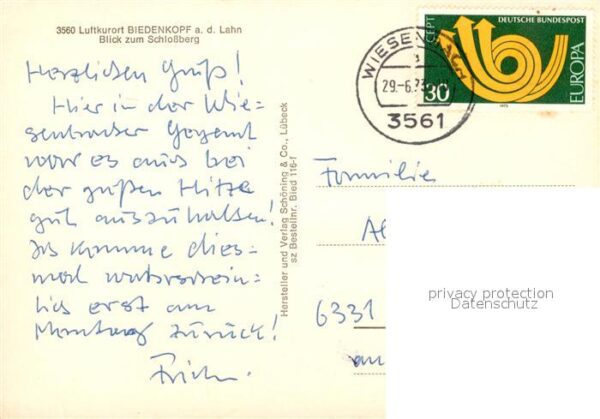 3560 Luftkurort BIEDENKOPF a. d. Lahn
Blick zum Schloßberg
Herzlichen Gruß!
Hier in der Wie-
senbacher Gegend
war es auch bei
der großen Hitze
gut auszuhalten!
Ich komme dies-
mal wahrschein-
lich erst am
Montag zurück!
Hersteller und Verlag Schöning & Co., Lübeck
sz Bestellnr. Bied 116-f
CEPT
DEUTSCHE BUNDESPOST
30
EUROPA
1973
29.-6.73
3561
Familie
6331
privacy protection
Datenschutz